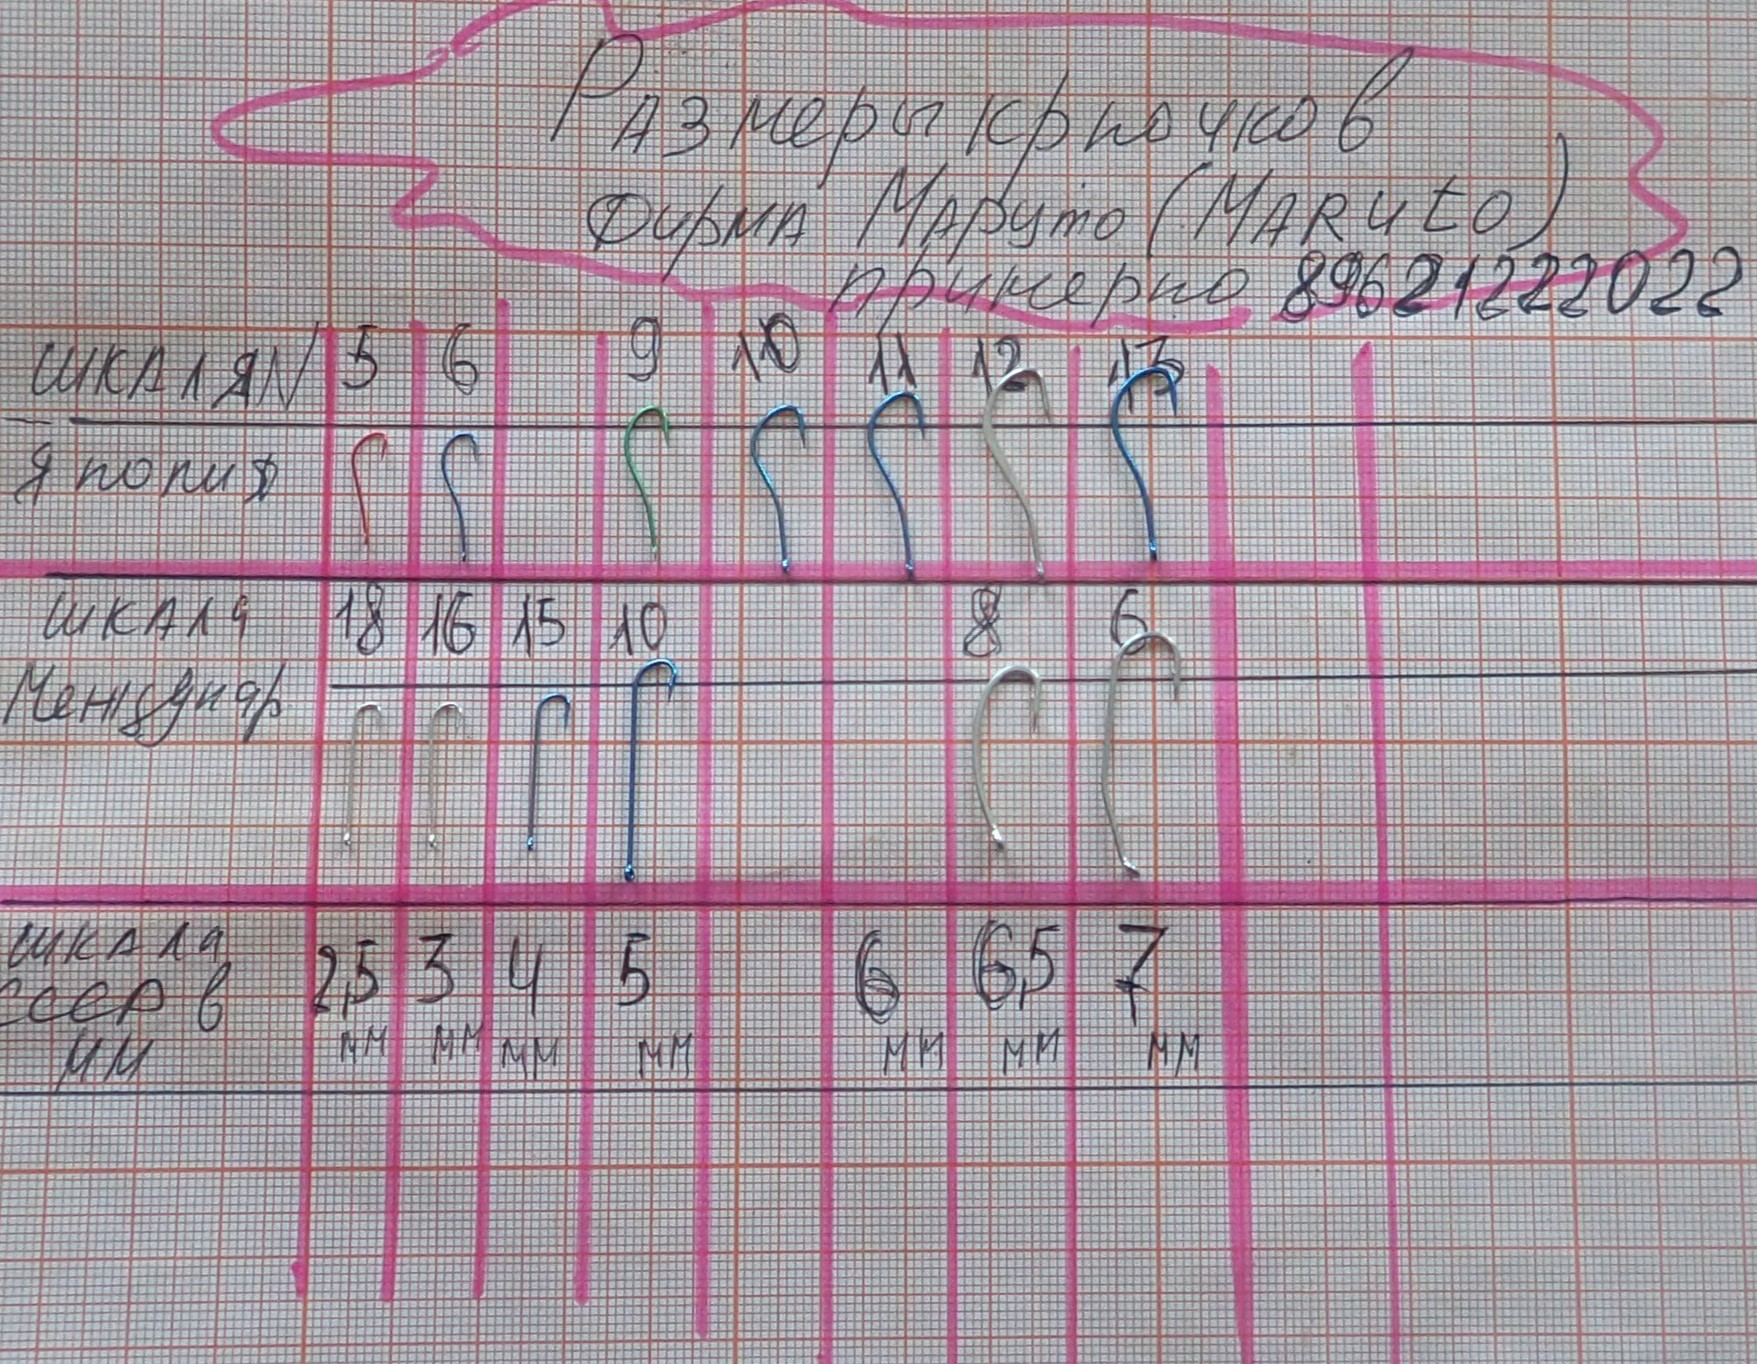 Размеры крючков
Фирма Маруто (MARUtO)
примерно 89621222022
шкала N 5 6 9 10 11 12 13
Япония
шкала 18 16 15 10 8 6
Междунар
шкала 2,5 3 4 5 6 6,5 7
ссср в
мм мм мм мм мм мм мм мм